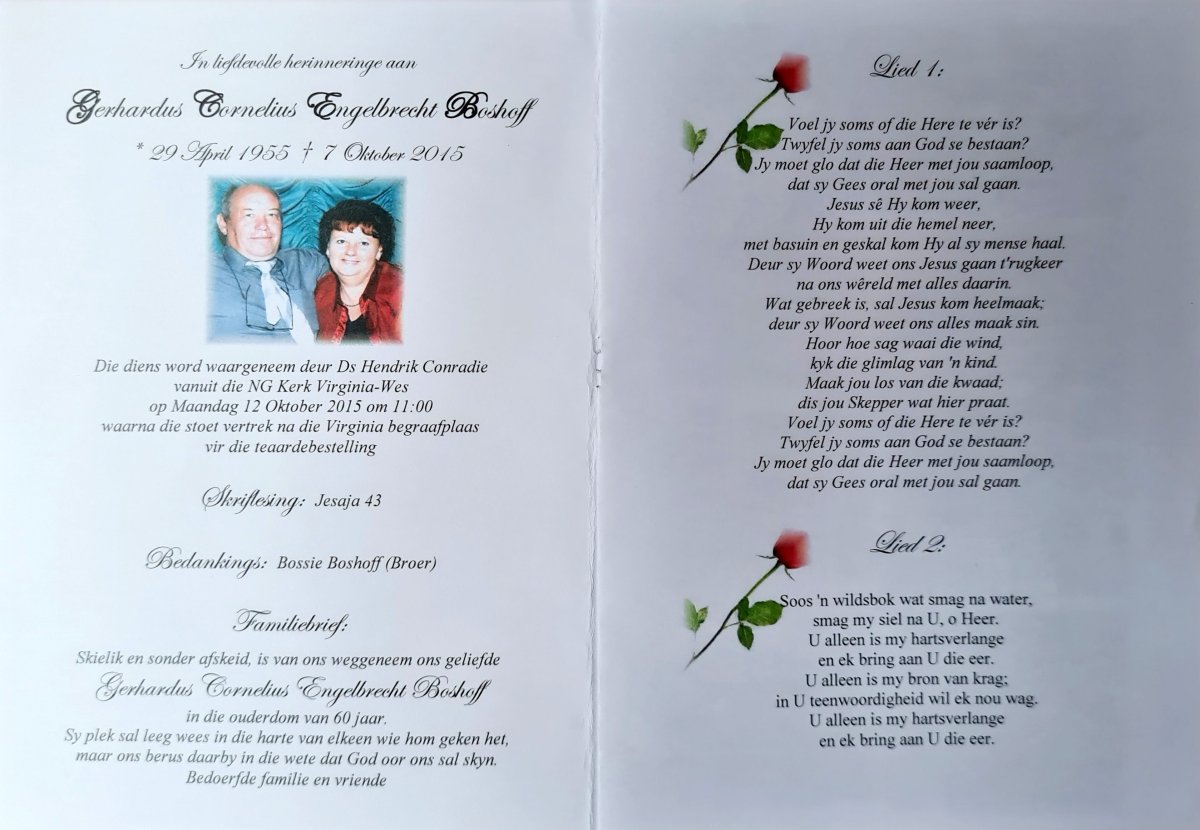 In liefdevolle herinneringe aan
Gerhardus Cornelius Engelbrecht Boshoff
* 29 April 1955 † 7 Oktober 2015
Die diens word waargeneem deur Ds Hendrik Conradie
vanuit die NG Kerk Virginia-Wes
op Maandag 12 Oktober 2015 om 11:00
waarna die stoet vertrek na die Virginia begraafplaas
vir die teaardebestelling
Skriflesing: Jesaja 43
Bedankings: Bossie Boshoff (Broer)
Familiebrief:
Skielik en sonder afskeid, is van ons weggeneem ons geliefde
Gerhardus Cornelius Engelbrecht Boshoff
in die ouderdom van 60 jaar.
Sy plek sal leeg wees in die harte van elkeen wie hom geken het,
maar ons berus daarby in die wete dat God oor ons sal skyn.
Bedoerfde familie en vriende
Lied 1:
Voel jy soms of die Here te vér is?
Twyfel jy soms aan God se bestaan?
Jy moet glo dat die Heer met jou saamloop,
dat sy Gees oral met jou sal gaan.
Jesus sê Hy kom weer,
Hy kom uit die hemel neer,
met basuin en geskal kom Hy al sy mense haal.
Deur sy Woord weet ons Jesus gaan t'rugkeer
na ons wêreld met alles daarin.
Wat gebreek is, sal Jesus kom heelmaak;
deur sy Woord weet ons alles maak sin.
Hoor hoe sag waai die wind,
kyk die glimlag van 'n kind.
Maak jou los van die kwaad;
dis jou Skepper wat hier praat.
Voel jy soms of die Here te vér is?
Twyfel jy soms aan God se bestaan?
Jy moet glo dat die Heer met jou saamloop,
dat sy Gees oral met jou sal gaan.
Lied 2:
Soos 'n wildsbok wat smag na water,
smag my siel na U, o Heer.
U alleen is my hartsverlange
en ek bring aan U die eer.
U alleen is my bron van krag;
in U teenwoordigheid wil ek nou wag.
U alleen is my hartsverlange
en ek bring aan U die eer.